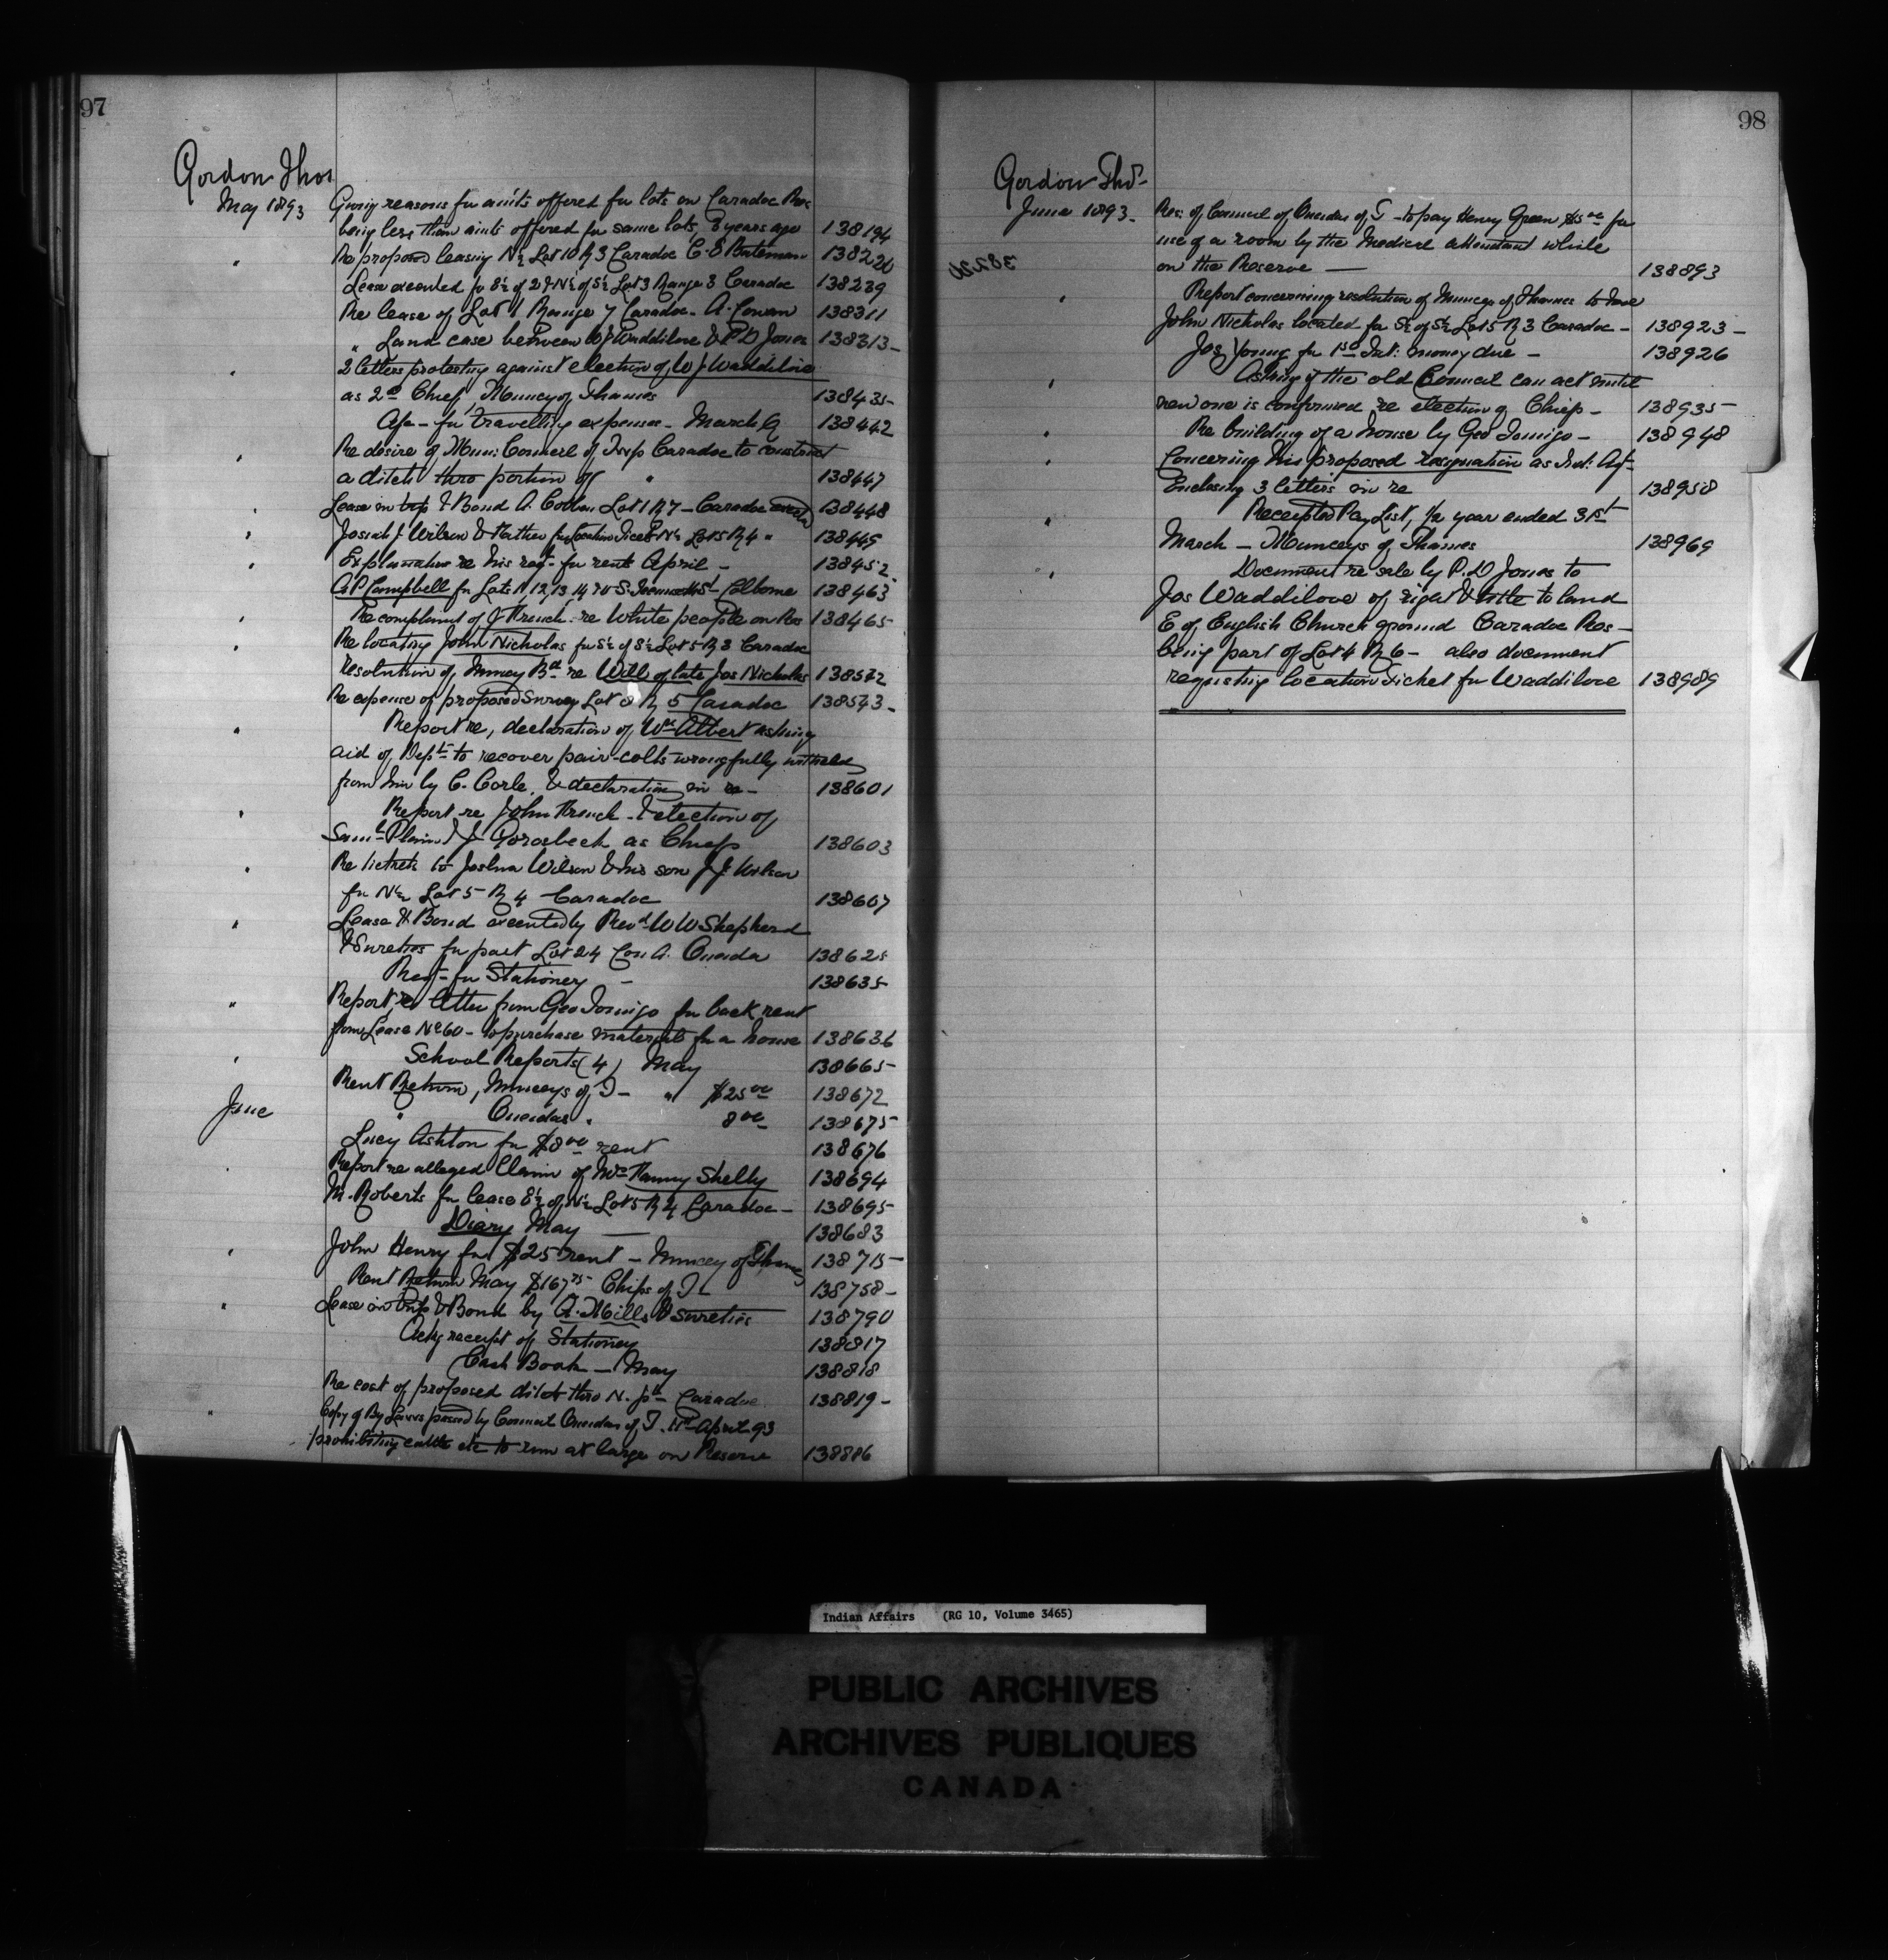 97
Gordon Thos
May 1893
Giving reasons for am'ts offered for lots on Caradoc Res
being less than am'ts offered for same lots, 8 years ago 138194
" Re proposed leasing N½ Lot 10 R 3 Caradoc C. E Bateman 138220
Lease executed for S½ of 2 & N½ of S½ Lot 3 Range 3 Caradoc 138239
Re lease of Lot 1 Range 7 Caradoc - A. Cowan 138311
" Land case between W J Waddilove & P D Jones 138313-
" 2 letters protesting against election of W J Waddilove
as 2nd Chief, Muncey of Thames 138435-
Apn - for travelling expenses - March 138442
" Re desire of Mun: Council of Twp Caradoc to construct
a ditch thro portion of " 138447
" Lease in trip & Bond A. Lot 1 R 7 - Caradoc 138448
" Josiah J. Wilson & Father for Location Ticket N½ Lot 5 R 4 " 138449
" Explanation re his reqt - for rent April - 138452-
A P Campbell for Lots 11, 12, 13, 14 70 S. St Colborne 138463
" Re complaint of J French re White people on Res 138465-
" Re locating John Nicholas for S½ of S½ Lot 5 R 3 Caradoc
resolution of Muncey Bd re Will of late Jos Nicholas 138572
Re expense of proposed Survey Lot 8 R 5 Caradoc 138573-
" Report re, declaration of Wm Albert asking
aid of Dept to recover pair-colts wrongfully withheld
from him by C. Corle, & declaration in re - 138601
" Report re John French - & election of
Saml Plain & J Grosbeck as Chiefs 138603
" Re tickets to Joshua Wilson & his son J J Wilson
for N½ Lot 5 R 4 Caradoc 138607
" Lease & Bond executed by Revd W W Shepherd
& Sureties for part Lot 24 Con A. Oneida 138625
Reqt - for Stationery - 138635
" Report re letter from Geo Tomigo for back rent
from Lease No 60 - to purchase materials for a house 138636
" School Reports (4) May 138665-
June Rent Return, Munceys of T - " $25 00 138672
" Oneidas " 8 00 138675
Lucy Ashton for $8 00 rent 138676
Report re alleged Claim of Mrs Fanny Shelly 138694
M. Roberts for lease S½ of N½ Lot 5 R 4 Caradoc - 138695
Diary May — 138683
" John Henry for $25 rent - Muncey of Thames 138715-
Rent Return May $167 75 Chips of T - 138758-
" Lease in trip & Bond by A. Mills & sureties 138790
Ackg receipt of Stationery 138817
Cash Book - May 138818
Re cost of proposed ditch thro N. pt - Caradoc 138819-
" Copy of By Laws passed by Council Oneidas of T. April 93
prohibiting cattle etc to run at large on Reserve 138886
98
Gordon Thos-
June 1893-
Res: of Council of Oneidas of T - to pay Henry Green $5 00 for
use of a room by the Medical attendant while
on the Reserve — 138893
" Report concerning resolution of Munceys of Thames to have
John Nicholas located for S½ of S½ Lot 5 R 3 Caradoc - 138923-
Jos Young for 150 Int: money due - 138926
" Asking if the old Council can act until
new one is confirmed re election of Chiefs - 138935-
" Re building of a house by Geo Tomigo - 138948
" Concerning his proposed resignation as Ind: Agt-
Enclosing 3 letters in re 138958
" Receipted Pay List, ½ year ended 31st
March - Munceys of Thames 138969
" Document re sale by P. D Jones to
Jos Waddilove of right & title to land
E of English Church ground Caradoc Res -
being part of Lot 4 R 6 - also document
requesting location Ticket for Waddilove 138989
Indian Affairs (RG 10, Volume 3465)
PUBLIC ARCHIVES
ARCHIVES PUBLIQUES
CANADA